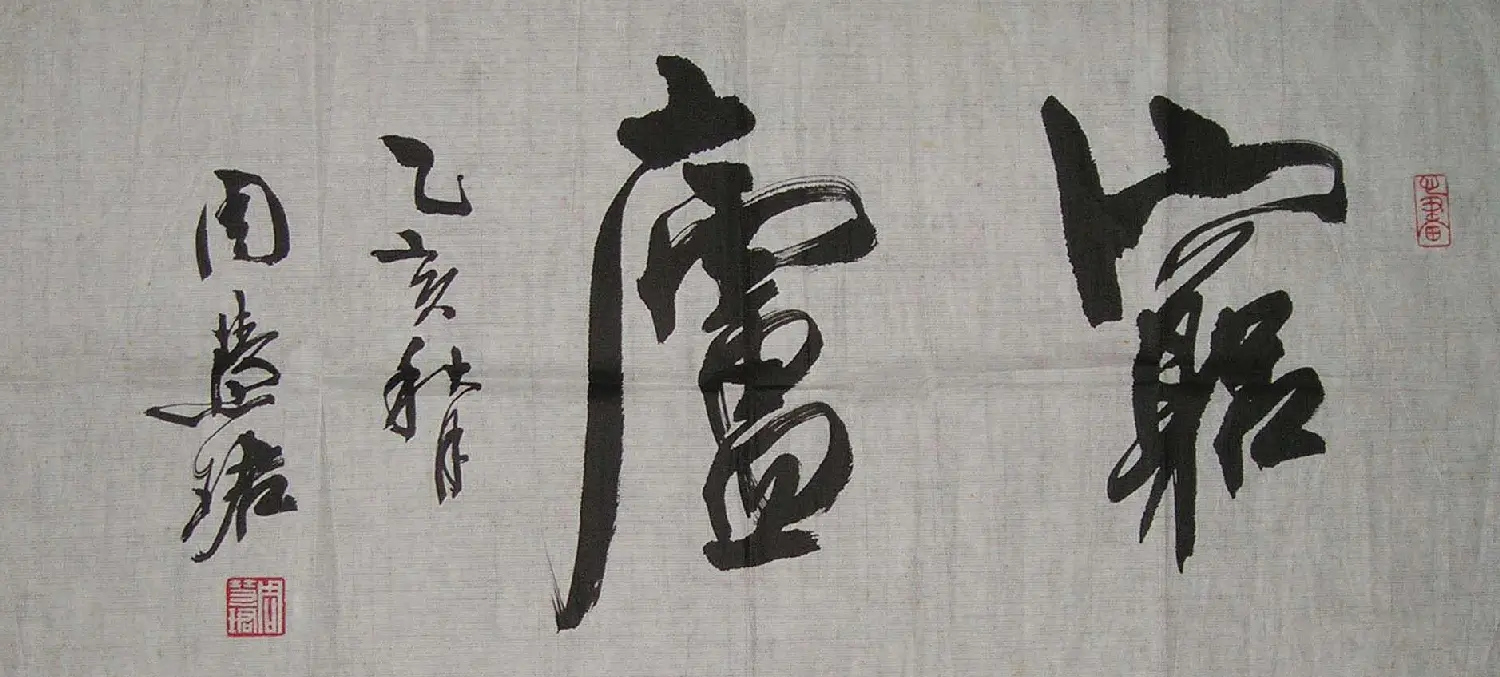 竆廬
乙亥秋月
周慧珺
周慧珺